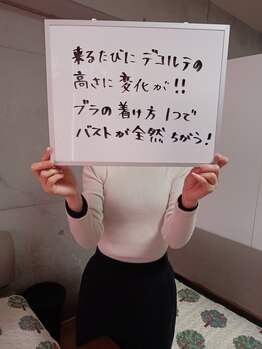 来るたびに デコルテの
高さに変化が!!
ブラの着け方 1つで
バストが全然ちがう!